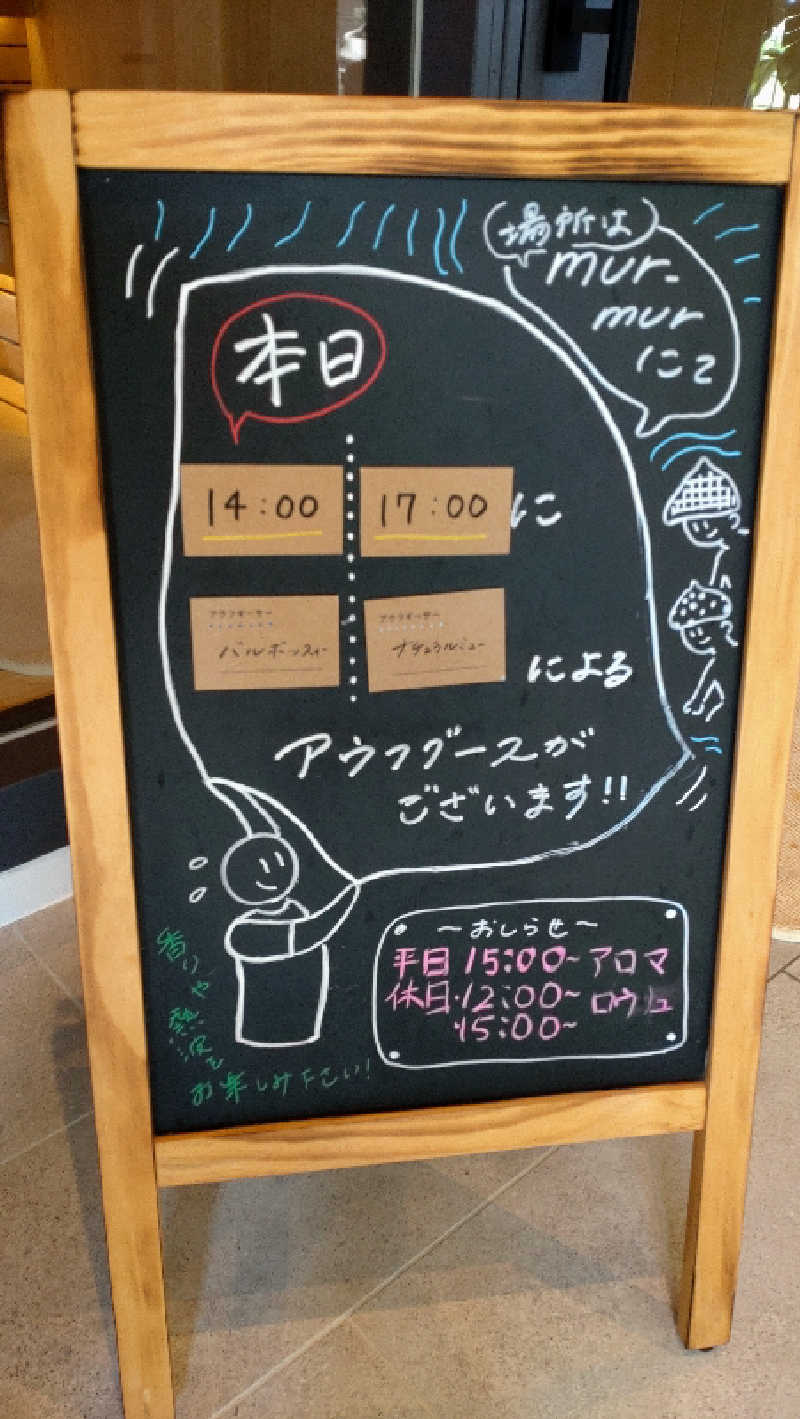 場所は
mur-
mur
にて
本日
14:00 17:00 に
アウフギーサー アウフギーサー
バルボッスィー ナチュラルミュー
による
アウフグースが
ございます!!
~おしらせ~
平日 15:00~ アロマ
休日・12:00~ ロウリュ
15:00~
香りや熱波を
お楽しみ下さい!